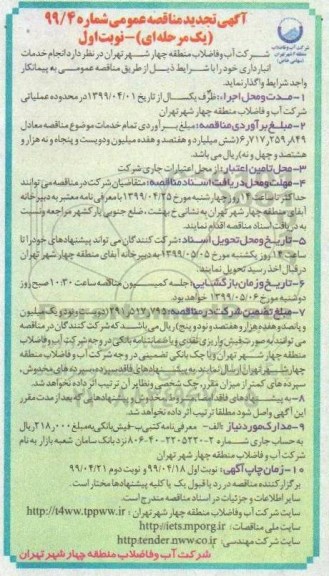 آگهی تجدید مناقصه عمومی شماره ۹۹/۴
(یک مرحله ای) - نوبت اول
شرکت آب و فاضلاب منطقه چهار شهر تهران در نظر دارد انجام خدمات
انبارداری خود را با شرایط ذیل از طریق مناقصه عمومی به پیمانکار
واجد شرایط واگذار نماید.
۱- مدت و محل اجراء: ظرف یکسال از تاریخ ۱۳۹۹/۰۴/۰۱ در محدوده عملیاتی
شرکت آب و فاضلاب منطقه چهار شهر تهران
۲- مبلغ برآوردی مناقصه: مبلغ برآوردی تمام خدمات موضوع مناقصه معادل
۶,۷۱۷,۲۵۹,۸۴۹ (شش میلیارد و هفتصد و هفده میلیون و دویست و پنجاه و نه هزار و
هشتصد و چهل و نه) ریال می باشد.
۳- محل تامین اعتبار: از محل اعتبارات جاری شرکت
۴- مهلت و محل دریافت اسناد مناقصه: متقاضیان شرکت در مناقصه می توانند
حداکثر تا ساعت ۱۴ روز چهارشنبه مورخ ۱۳۹۹/۰۴/۲۵ با معرفی نامه معتبر به دبیرخانه
آبفای منطقه چهار شهر تهران به نشانی خ بهشت، ضلع جنوبی پارک شهر مراجعه و نسبت
به دریافت اسناد مناقصه اقدام نمایند.
۵- تاریخ و محل تحویل اسناد: شرکت کنندگان می تواند پیشنهادهای خود را تا
ساعت ۱۴ روز یکشنبه مورخ ۱۳۹۹/۰۵/۰۵ به دبیرخانه آبفای منطقه چهار شهر تهران
در قبال اخذ رسید تحویل نمایند.
۶- تاریخ و زمان بازگشایی: جلسه کمیسیون مناقصه ساعت ۱۰:۳۰ صبح روز
دوشنبه مورخ ۱۳۹۹/۰۵/۰۶ خواهد بود.
۷- مبلغ تضمین شرکت در مناقصه: ریال می باشد که شرکت کنندگان در مناقصه
می توانند به صورت فیش واریزی نقدی و یا ضمانتنامه بانکی در وجه شرکت آب و فاضلاب
منطقه چهار شهر تهران و یا چک بانکی تضمینی در وجه شرکت آب و فاضلاب منطقه
چهار شهر تهران ارسال نمایند. به پیشنهادهای فاقد سپرده، سپرده های مخدوش،
سپرده های کمتر از میزان مقرر، چک شخصی و نظایر آن ترتیب اثر داده نخواهد شد.
۸- به پیشنهادهای فاقد امضاء، مشروط، مخدوش و پیشنهادهایی که بعد از مدت مقرر
این آگهی واصل شود مطلقا ترتیب اثر داده نخواهد شد.
۹- مدارک مورد نیاز: الف- معرفی نامه کتبی ب- فیش بانکی به مبلغ ۲۱۸,۰۰۰ ریال
به حساب جاری شماره ۲-۲۲۰۵۲۲-۴۰-۸۰۶ نزد بانک سامان شعبه بازار به نام
شرکت آب و فاضلاب منطقه چهار شهر تهران
۱۰- زمان چاپ آگهی: نوبت اول ۹۹/۰۴/۱۸ و نوبت دوم ۹۹/۰۴/۲۱
برگزار کننده مناقصه در رد یا قبول یک یا کلیه پیشنهادها مختار است.
سایر اطلاعات و جزئیات در اسناد مناقصه مندرج است.
سایت شرکت آب و فاضلاب منطقه چهار شهر تهران: http://t4ww.tppww.ir
سایت ملی مناقصات: http://iets.mporg.ir
سایت شرکت مهندسی: http://tender.nww.co.ir
شرکت آب و فاضلاب منطقه چهار شهر تهران